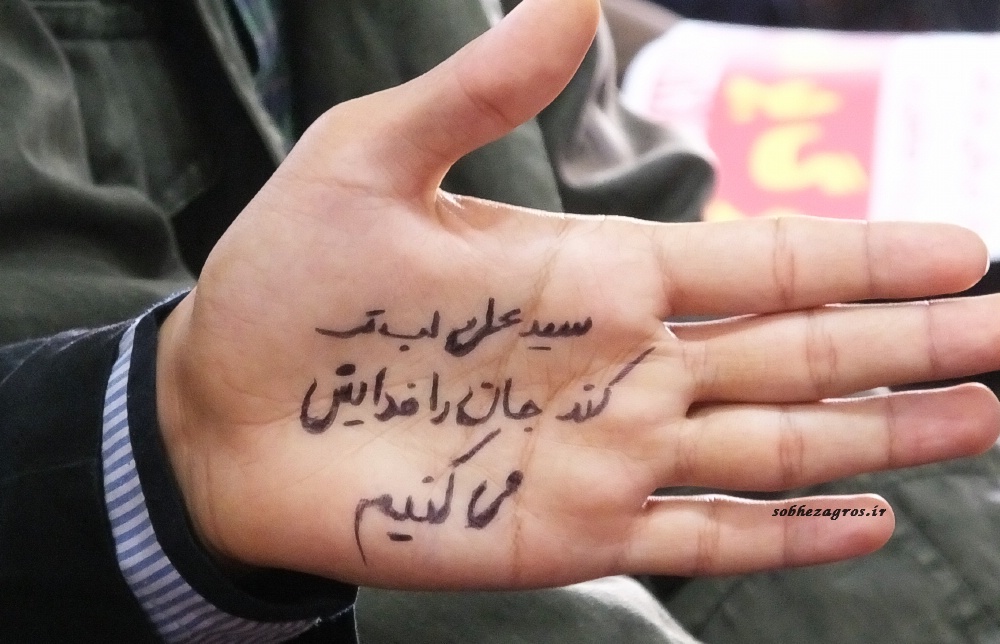 سید علی لب تر
کند جان را فدایش
می کنیم
sobhezagros.ir